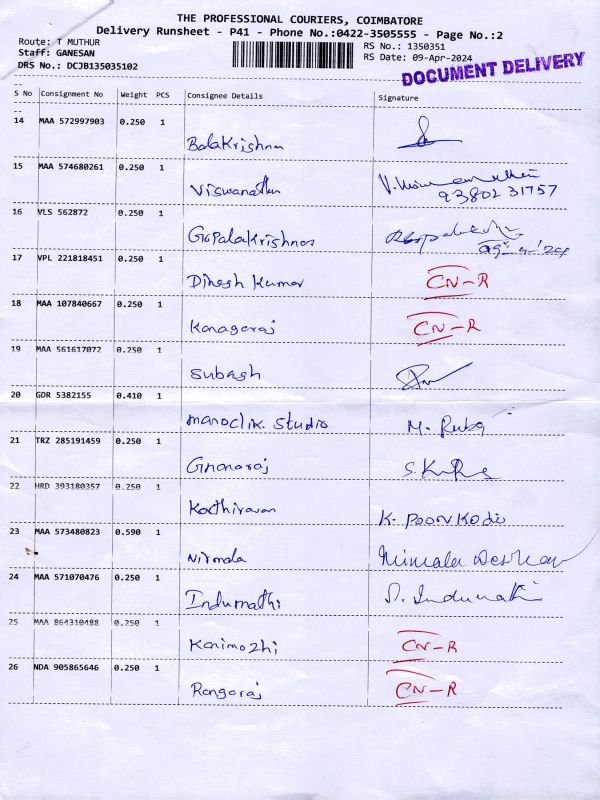 THE PROFESSIONAL COURIERS, COIMBATORE
Delivery Runsheet - P41 - Phone No.:0422-3505555 - Page No.:2
Route: T MUTHUR
Staff: GANESAN
DRS No.: DCJB135035102
RS No.: 1350351
RS Date: 09-Apr-2024
DOCUMENT DELIVERY
S No Consignment No Weight PCS Consignee Details Signature
14 MAA 572997903 0.250 1
Balakrishnan
15 MAA 574680261 0.250 1
Viswanathan
93802 31757
16 VLS 562872 0.250 1
Gopalakrishnan
17 VPL 221818451 0.250 1
Dinesh Kumar CN-R
18 MAA 107840667 0.250 1
Kanagaraj CN-R
19 MAA 561617072 0.250 1
Subash
20 GDR 5382155 0.410 1
manoclik. Studio M. Ruba
21 TRZ 285191459 0.250 1
Gnanaraj
22 HRD 393180357 0.250 1
Kathiravan K. POONKODI
23 MAA 573480823 0.590 1
Nirmala
24 MAA 571070476 0.250 1
Indumathi
25 MAA 864310488 0.250 1
Kanimozhi CN-R
26 NDA 905865646 0.250 1
Rangaraj CN-R